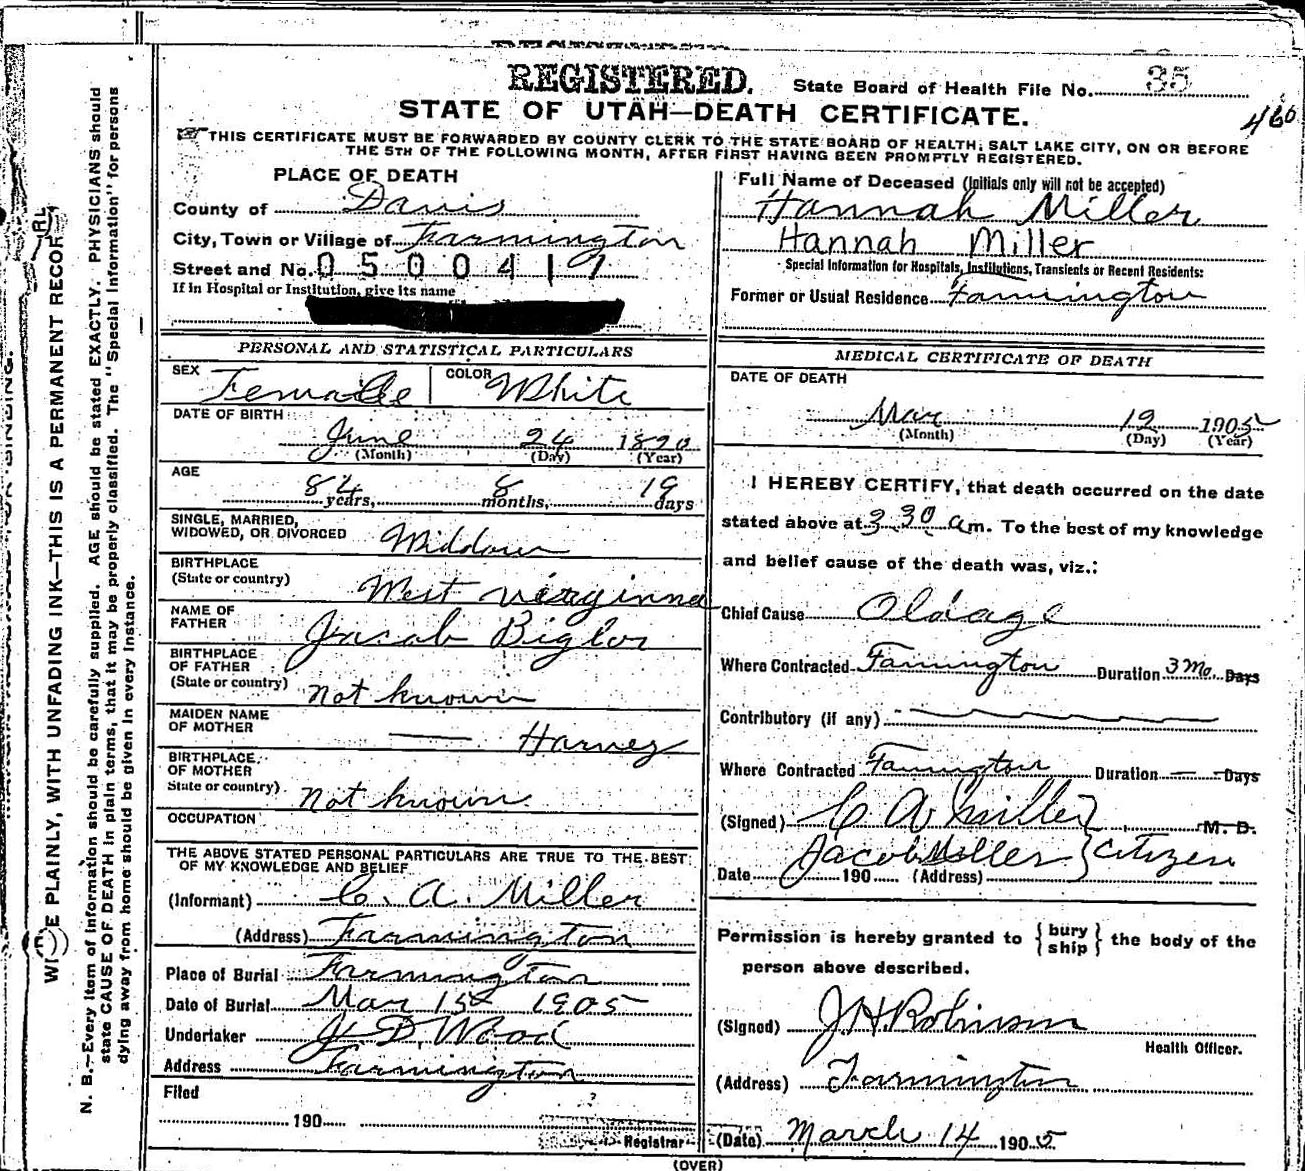 REGISTERED.
State Board of Health File No. 35
STATE OF UTAH—DEATH CERTIFICATE.
460
THIS CERTIFICATE MUST BE FORWARDED BY COUNTY CLERK TO THE STATE BOARD OF HEALTH, SALT LAKE CITY, ON OR BEFORE
THE 5TH OF THE FOLLOWING MONTH, AFTER FIRST HAVING BEEN PROMPTLY REGISTERED.
PLACE OF DEATH
County of Davis
City, Town or Village of Farmington
Street and No. 0500417
If in Hospital or Institution, give its name
Full Name of Deceased (Initials only will not be accepted)
Hannah Miller
Hannah Miller
Special Information for Hospitals, Institutions, Transients or Recent Residents:
Former or Usual Residence Farmington
PERSONAL AND STATISTICAL PARTICULARS
SEX Female COLOR White
DATE OF BIRTH
June 24 1820
(Month) (Day) (Year)
AGE
84 years, 8 months, 19 days
SINGLE, MARRIED,
WIDOWED, OR DIVORCED Widdow
BIRTHPLACE
(State or country) West Virginna
NAME OF
FATHER Jacob Bigler
BIRTHPLACE
OF FATHER
(State or country) not known
MAIDEN NAME
OF MOTHER — Harvey
BIRTHPLACE
OF MOTHER
State or country) not known
OCCUPATION
THE ABOVE STATED PERSONAL PARTICULARS ARE TRUE TO THE BEST
OF MY KNOWLEDGE AND BELIEF
(Informant) C. A. Miller
(Address) Farmington
Place of Burial Farmington
Date of Burial Mar 15 1905
Undertaker D. Wood
Address Farmington
Filed
190
Registrar
MEDICAL CERTIFICATE OF DEATH
DATE OF DEATH
Mar 12 1905
(Month) (Day) (Year)
I HEREBY CERTIFY, that death occurred on the date
stated above at 3.30 a m. To the best of my knowledge
and belief cause of the death was, viz.:
Chief Cause Old age
Where Contracted Farmington Duration 3 Mo. Days
Contributory (if any)
Where Contracted Farmington Duration — Days
(Signed) C A Miller M. D.
Jacob Miller } Citizen
Date 190 (Address)
Permission is hereby granted to { bury
ship } the body of the
person above described.
(Signed) J H Robinson
Health Officer.
(Address) Farmington
(Date) March 14 1905
(OVER)
PLAINLY, WITH UNFADING INK—THIS IS A PERMANENT RECORD
N. B.—Every item of information should be carefully supplied. AGE should be stated EXACTLY. PHYSICIANS should
state CAUSE OF DEATH in plain terms, that it may be properly classified. The "Special Information" for persons
dying away from home should be given in every instance.